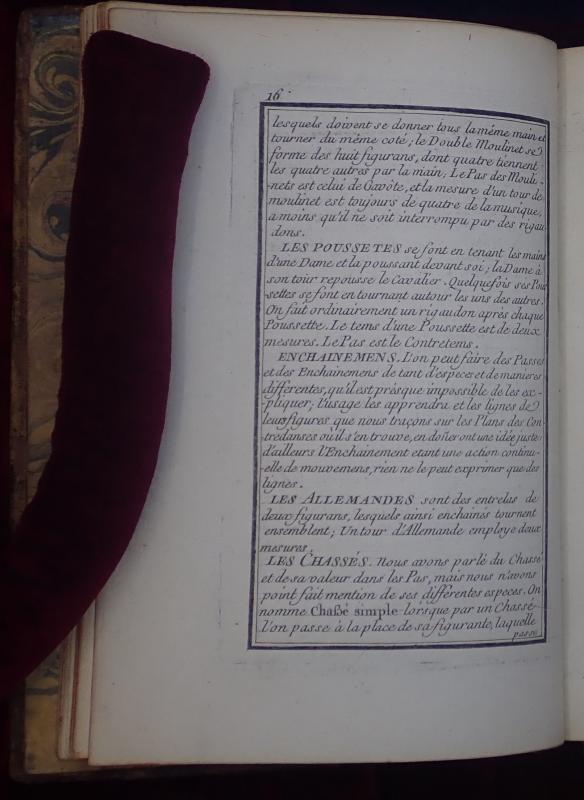 16
lesquels doivent se donner tous la même main et
tourner du même coté; le Double Moulinet se
forme des huit figurans, dont quatre tiennent
les quatre autres par la main; Le Pas des Mouli-
nets est celui de Gavôte, et la mesure d'un tour de
moulinet est toujours de quatre de la musique,
a moins qu'il ne soit interrompu par des rigau
dons.
LES POUSSETES se font en tenant les mains
d'une Dame et la poussant devant soi; la Dame à
son tour repousse le Cavalier. Quelquefois ses Pou
settes se font en tournant autour les uns des autres.
On fait ordinairement un rigaudon après chaque
Poussette. Le tems d'une Poussette est de deux
mesures. Le Pas est le Contretems.
ENCHAINEMENS. L'on peut faire des Passes
et des Enchainemens de tant d'especes et de manieres
differentes, qu'il est présque impossible de les ex-
pliquer; l'usage les apprendra et les lignes de
leurs figures que nous traçons sur les Plans des Con
tredanses où il s'en trouve, en doñeront une idée juste:
d'ailleurs l'Enchainement etant une action continu-
elle de mouvemens, rien ne le peut exprimer que des
lignes.
LES ALLEMANDES sont des entrelas de
deux figurans, lesquels ainsi enchainés tournent
ensemblent; Un tour d'Allemande employe deux
mesures.
LES CHASSÉS. Nous avons parlé du Chassé
et de sa valeur dans les Pas, mais nous n'avons
point fait mention de ses differentes especes. On
nomme Chaßé simple lorsque par un Chassé
l'on passe à la place de sa figurante, laquelle
passe